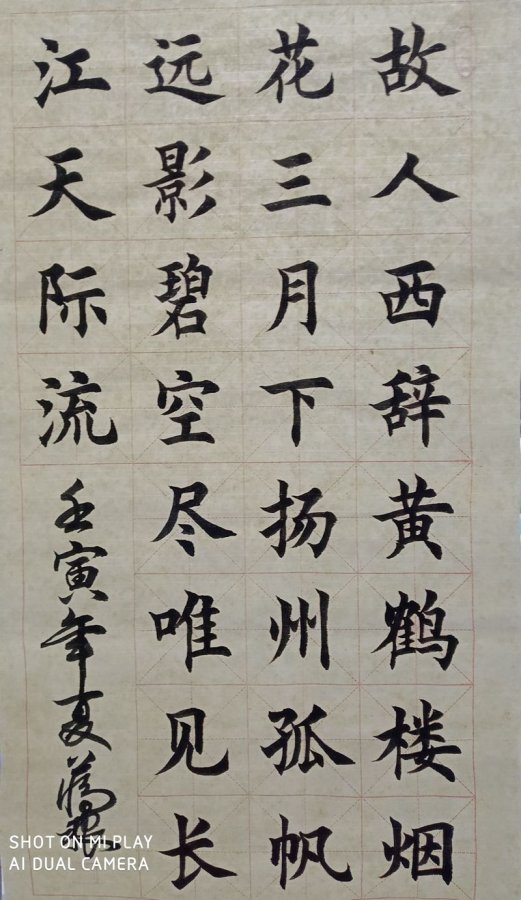 故人西辞黄鹤楼烟
花三月下扬州孤帆
远影碧空尽唯见长
江天际流
壬寅年夏
SHOT ON MI PLAY
AI DUAL CAMERA